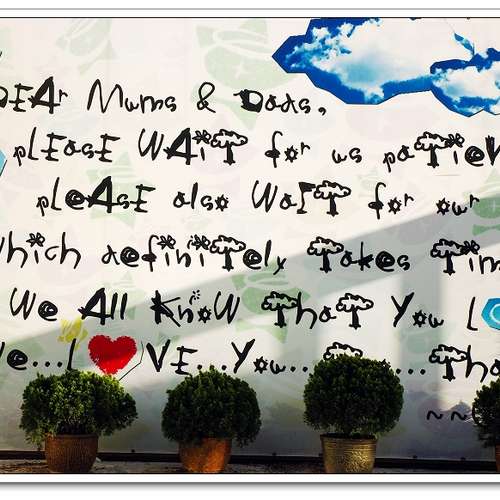 DEAr Mums & Dads,
pLEASE WAiT for us paTieN
pLeASE also WaIT for our
Which definiTely Takes Tim
We All KnoW ThaT You L
We...L❤VE...You......Tha
~~